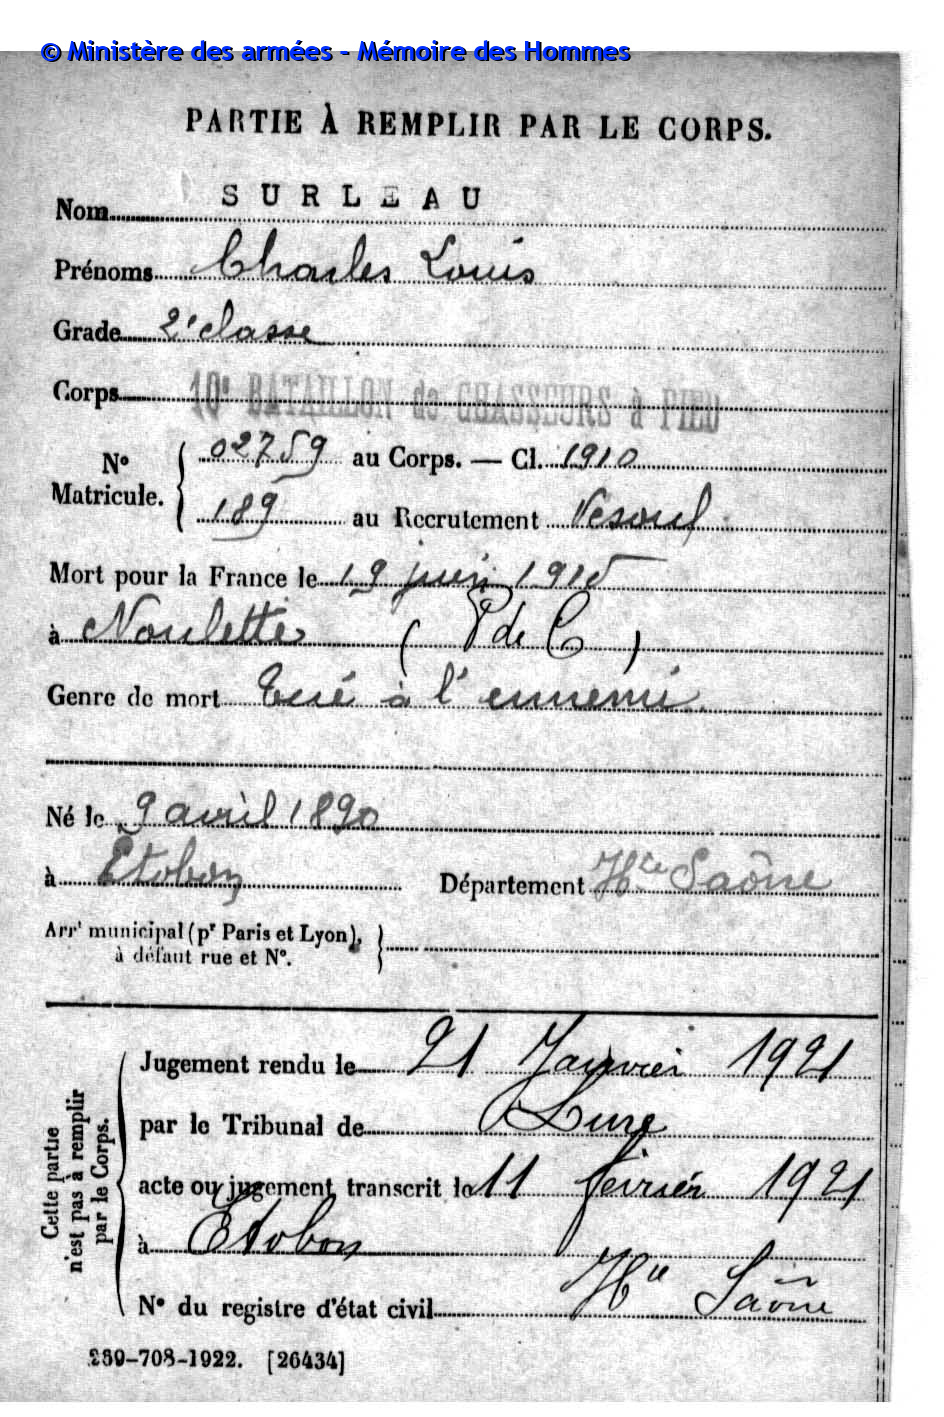 © Ministère des armées - Mémoire des Hommes
PARTIE À REMPLIR PAR LE CORPS.
Nom SURLEAU
Prénoms Charles Louis
Grade 2e classe
Corps 10e BATAILLON de CHASSEURS à PIED
N° Matricule. { 02759 au Corps. — Cl. 1910
189 au Recrutement Vesoul
Mort pour la France le 19 juin 1915
à Noulette (P de C)
Genre de mort Tué à l'ennemi.
Né le 9 avril 1890
à Etobon Département Hte Saône
Arrt municipal (pr Paris et Lyon), }
à défaut rue et N°.
Cette partie
n'est pas à remplir
par le Corps.
Jugement rendu le 21 Janvier 1921
par le Tribunal de Lure
acte ou jugement transcrit le 11 février 1921
à Etobon
Hte Saône
N° du registre d'état civil
289-708-1922. [26434]